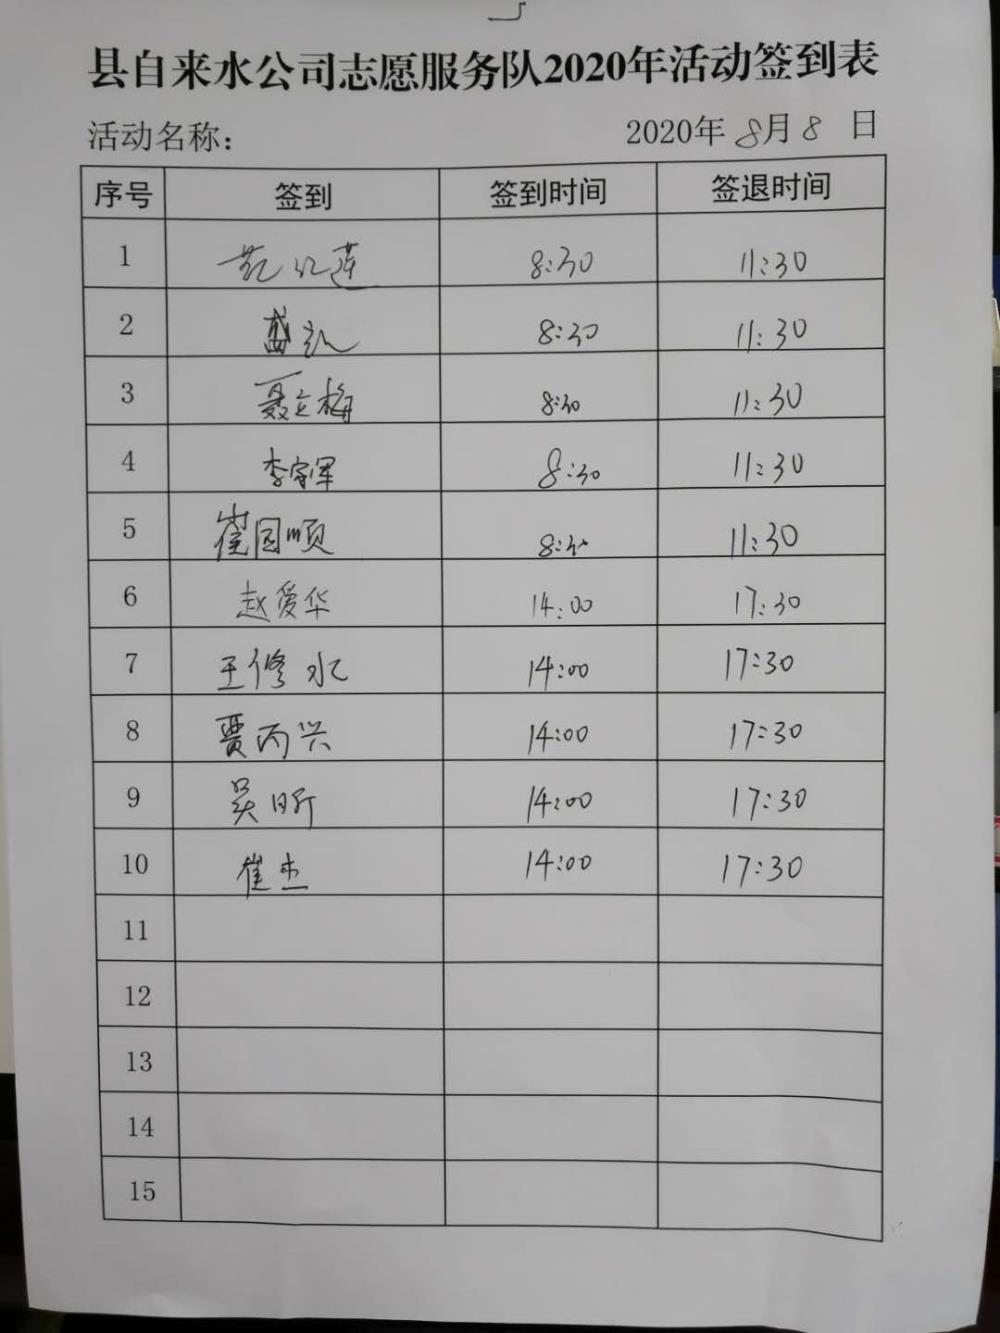 县自来水公司志愿服务队2020年活动签到表
活动名称： 2020年 8月 8 日
序号 签到 签到时间 签退时间
1 范红莲 8:30 11:30
2 盛 8:30 11:30
3 聂立梅 8:30 11:30
4 李家军 8:30 11:30
5 崔园顺 8:30 11:30
6 赵爱华 14:00 17:30
7 王修水 14:00 17:30
8 贾丙兴 14:00 17:30
9 吴昕 14:00 17:30
10 崔杰 14:00 17:30
11
12
13
14
15